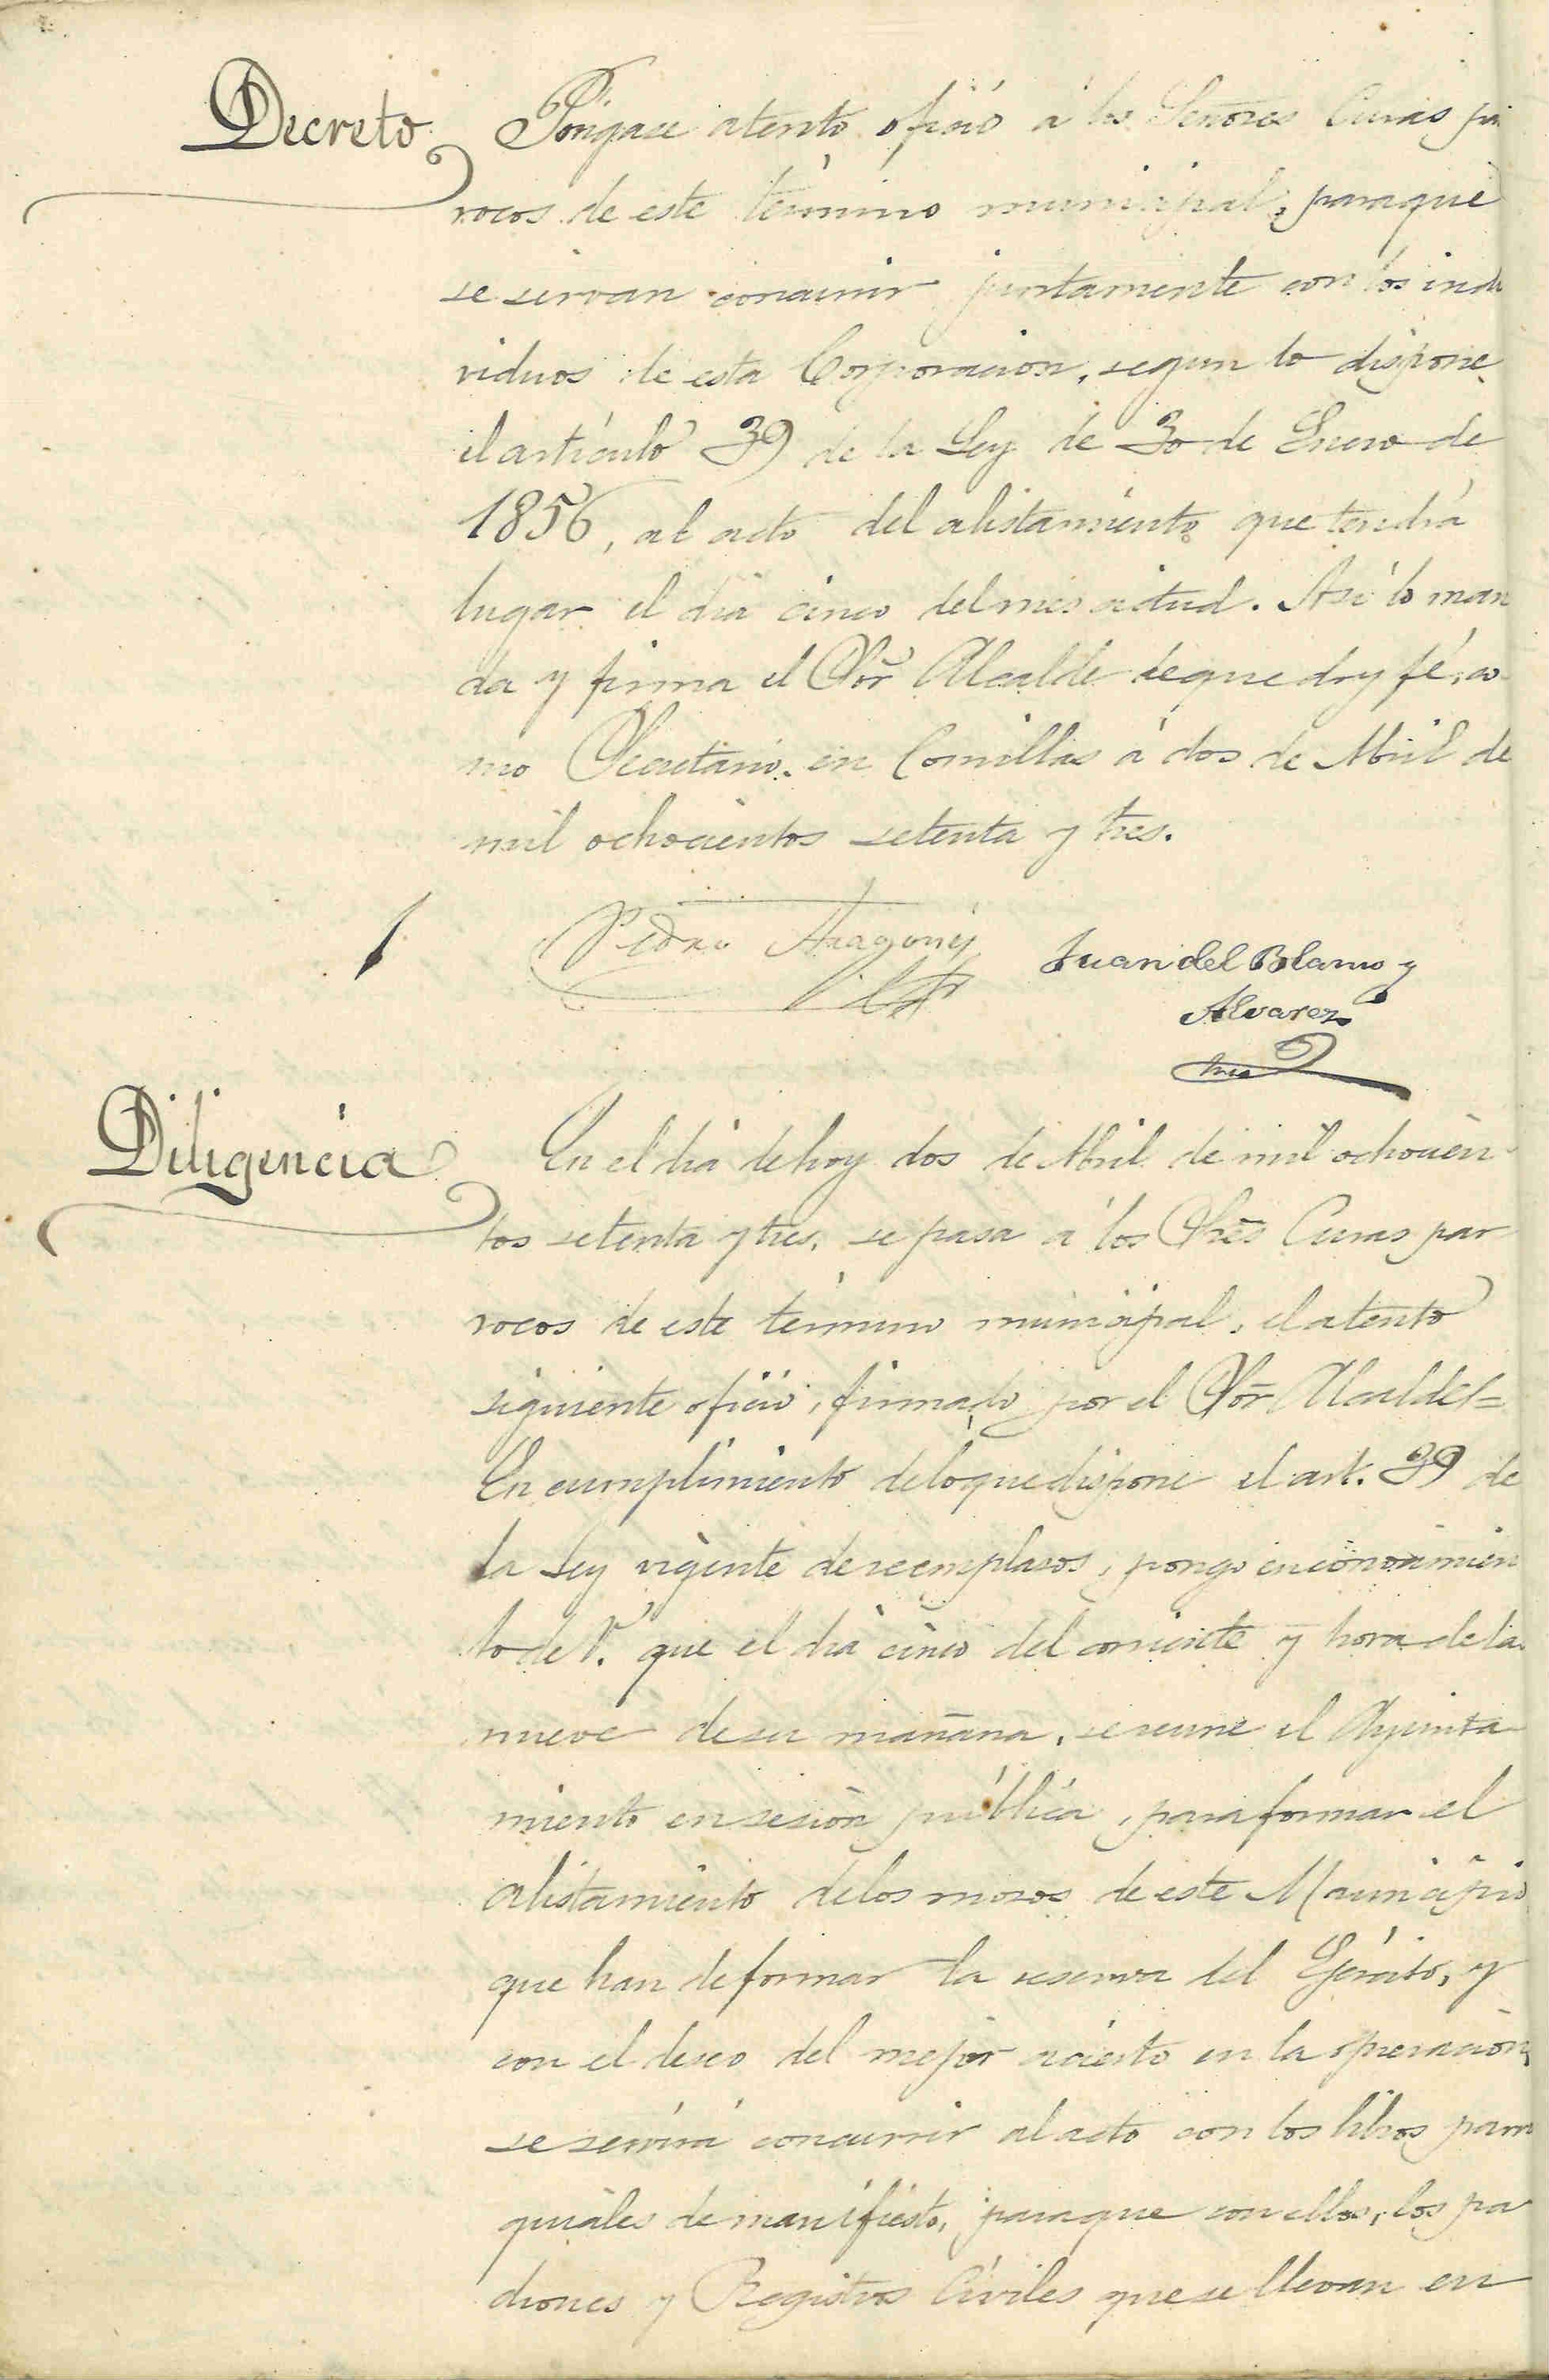 Decreto Póngase atento oficio á los Señores Curas pár
rocos de este término municipal, paraque
se sirvan concurrir juntamente con los indi
viduos de esta Corporacion, segun lo dispone
el artículo 39 de la Ley de 30 de Enero de
1856, al acto del alistamiento que tendrá
lugar el dia cinco del mes actual. Así lo man
da y firma el Sor Alcalde de que doy fé, co
mo Secretario, en Comillas á dos de Abril de
mil ochocientos setenta y tres.
Pedro Aragonés
Juan del Blanco y
Alvarez
Diligencia En el dia de hoy dos de Abril de mil ochocien
tos setenta y tres, se pasa á los Sres Curas pár
rocos de este término municipal, el atento
siguiente oficio, firmado por el Sor Alcalde=
En cumplimiento de lo que dispone el art. 39 de
la Ley vigente de reemplasos, pongo en conocimien
to de V. que el dia cinco del corriente y hora de la
nueve de su mañana, se reune el Ayunta
miento en sesion pública, para formar el
alistamiento de los mosos de este Municipio
que han de formar la reserva del Ejército, y
con el deseo del mejor acierto en la operacion,
se servirá concurrir al acto con los libros parro
quiales de manifiesto, paraque con ellos, los pa
drones y Registros Civiles que se llevan en